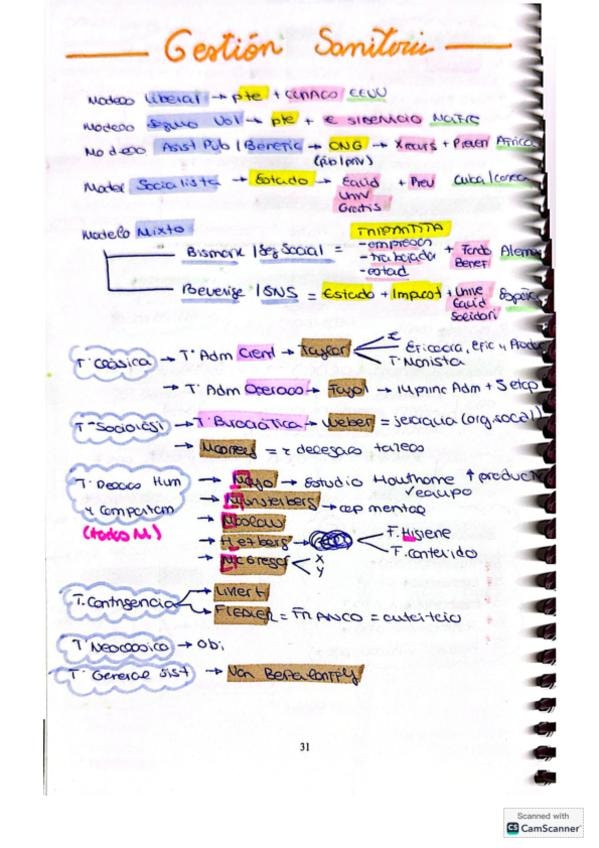 Gestión Sanitaria
Modelo Liberal → pte + EEUU
Modelo Seguro Vol → pte +
Modelo Asist Pub / Benefic → ONG → Xrecurs + Preven África
(púb/priv)
Model Socialista → Estado → Equid + Prev Cuba/Corea
Univ
Gratis
Modelo Mixto TRIPARTITA
Bismark / Seg Social = -empresas + Fondo Alema
-trabajador Benef
-estad
Beverige / SNS = Estado + Impuest + Unive España
Equid
Solidari
T. Clásica → T. Adm Cient → Taylor
Eficacia, Efic y Produc
T. Monista
→ T. Adm → Fayol → 14 princ Adm + 5 etap
T. Sociológi → T. Burocrática → Weber = jerarquía (org. social)
→ Mooney = delegaco tareas
T. Desaco Hum → Mayo → Estudio Hawthorne ↑ product
y Comportam ✓equipo
(todos M) → Münsterberg → cap mental
→ Maslow
→ Herzberg → F. Higiene
F. contenido
→ McGregor X
Y
T. Contingencia Likert
Fiedler = FRANCO = autoritario
T. Neoclásico → Obj
T. General Sist → Von Bertalanffy
31
Scanned with
CS CamScanner